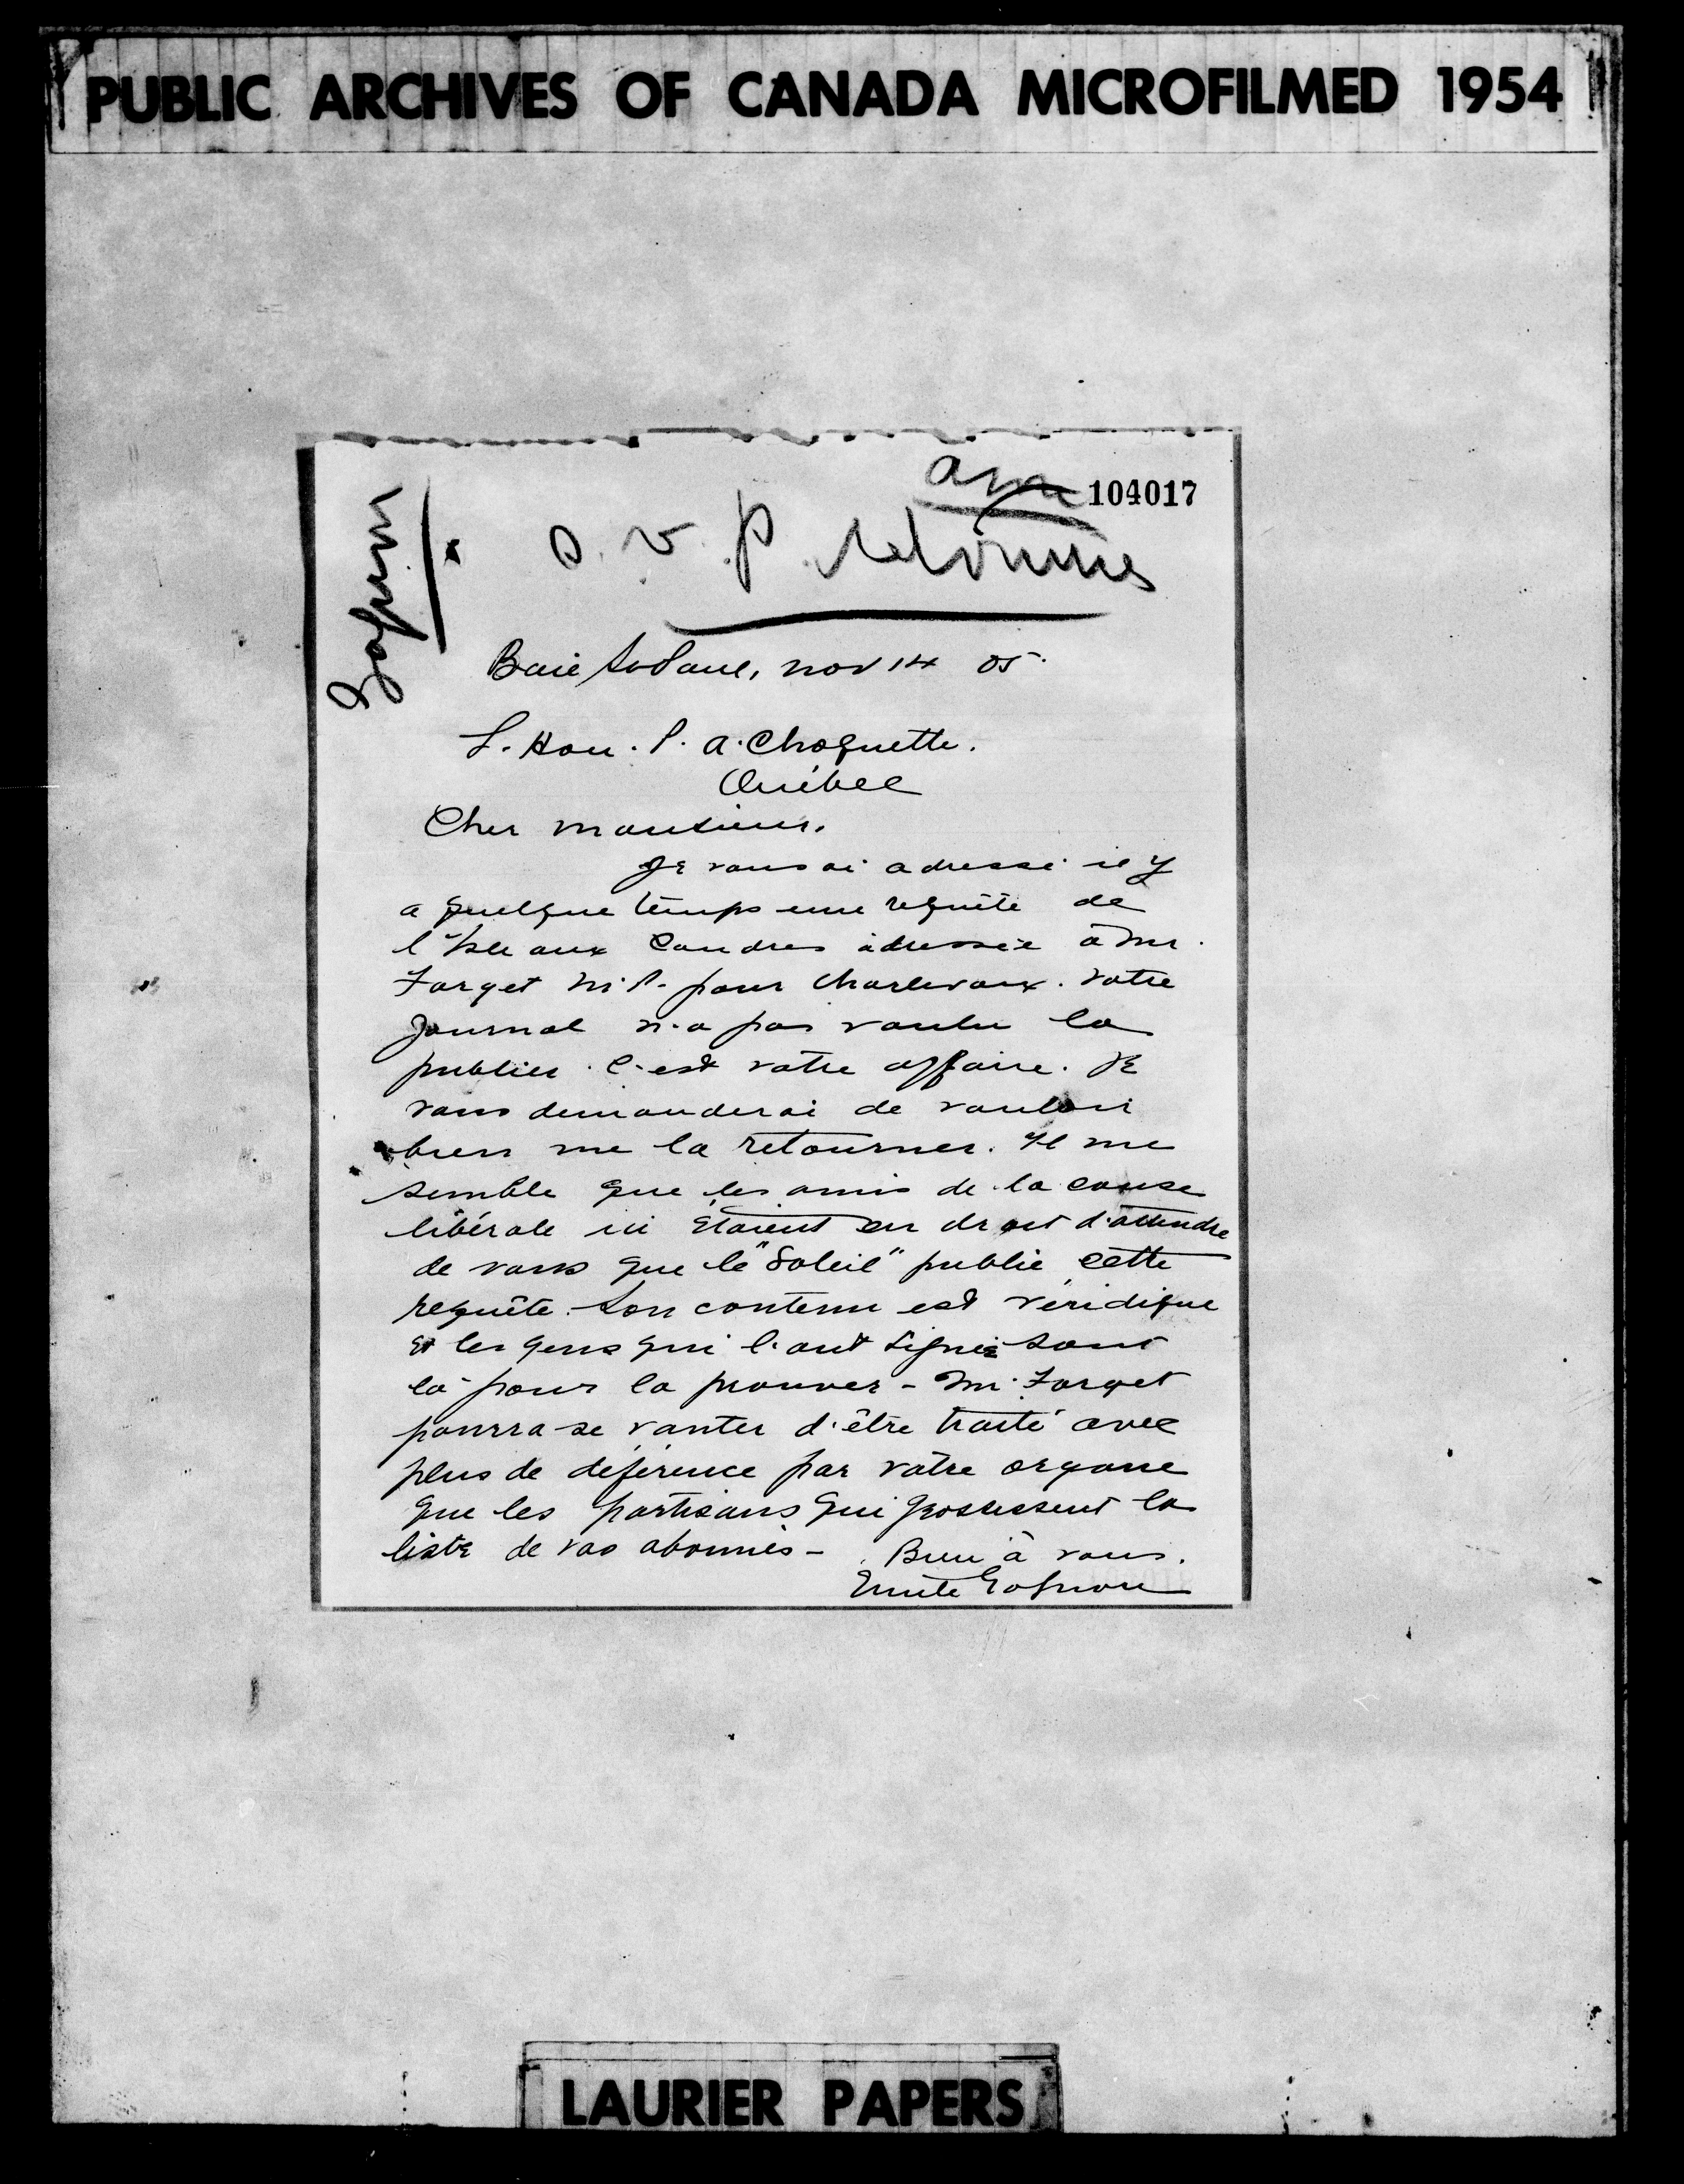 PUBLIC ARCHIVES OF CANADA MICROFILMED 1954
104017
s. v. p. retournes
Baie St Paul, nov 14 05.
L. Hon. P. A. Choquette.
Québec
Cher monsieur.
Je vous ai adressé il y
a quelque temps une requête de
l'Isle aux Coudres adressée à Mr.
Forget M.P. pour Charlevoix. Votre
journal n'a pas voulu la
publier. C'est votre affaire. Je
vous demanderai de vouloir
bien me la retourner. Il me
semble que les amis de la cause
libérale ici étaient en droit d'attendre
de vous que le "Soleil" publie cette
requête. Son contenu est véridique
et les gens qui l'ont signée sont
là pour la prouver - Mr. Forget
pourra se vanter d'être traité avec
plus de déférence par votre organe
que les partisans qui grossissent la
liste de vos abonnés - Bien à vous.
Emile Gagnon
LAURIER PAPERS